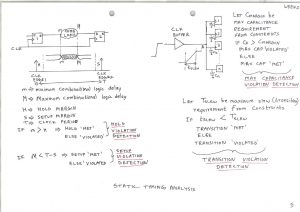 CLK
CLK
BUFFER
m → minimum combinational logic delay
M → Maximum combinational logic delay
H → HOLD MARGIN
S → SETUP MARGIN
T → CLOCK PERIOD
IF m > H ⇒ HOLD 'MET'
ELSE 'VIOLATED'
HOLD
VIOLATION
DETECTION
IF M < T-S ⇒ SETUP 'MET'
ELSE 'VIOLATED'
SETUP
VIOLATION
DETECTION
MAX CAPACITANCE
REQUIREMENT
FROM CONSTRAINTS
MAX CAP VIOLATED
ELSE
MAX CAP 'MET'
MAX CAPACITANCE
VIOLATION DETECTION
REQUIREMENT FROM CONSTRAINTS
TRANSITION 'MET'
ELSE
TRANSITION 'VIOLATED'
TRANSITION VIOLATION
DETECTION
STATIC TIMING ANALYSIS